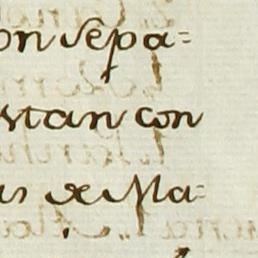 on sepa=
stan con
as de Ma=